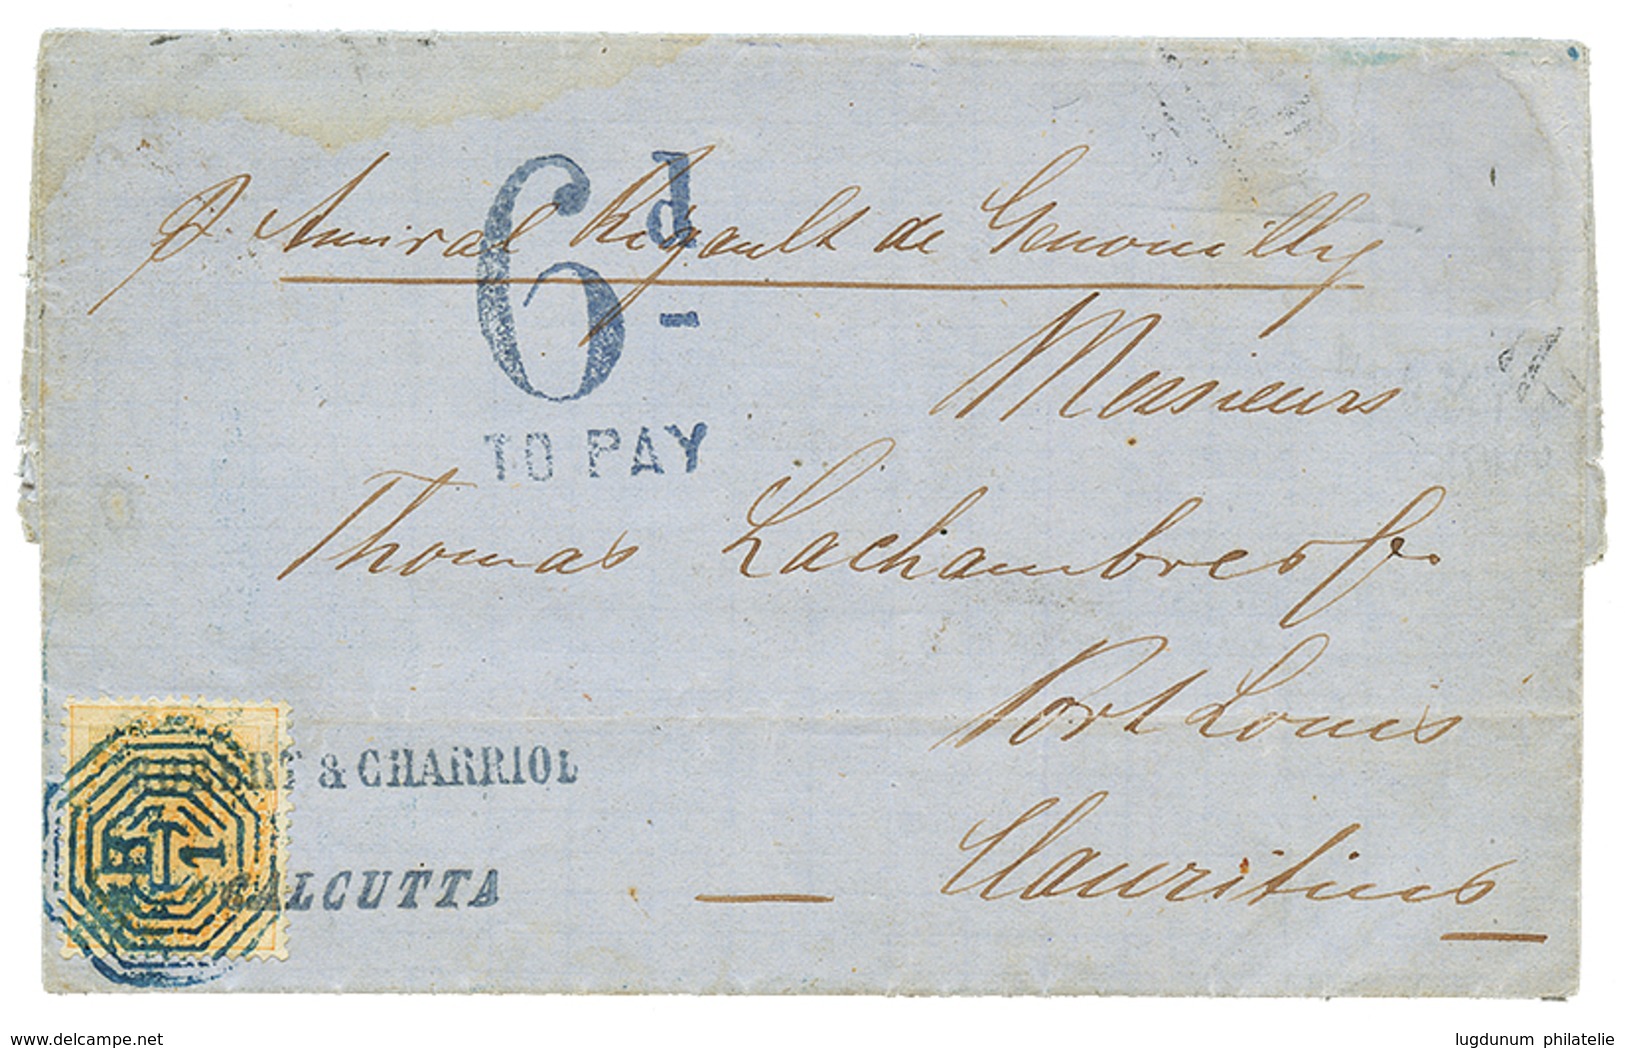 p. Amiral Rigault de Genouilly
6d
-
TO PAY
Messieurs
Thomas Lachambre & Co.
Port Louis
Mauritius
& CHARRIOL
CALCUTTA
B
1
www.delcampe.net
lugdunum philatelie